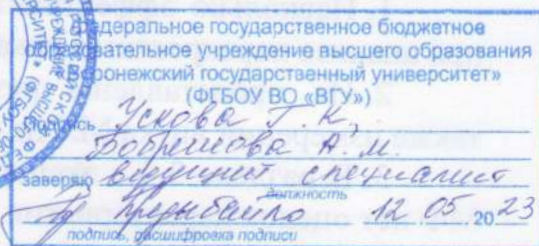 Федеральное государственное бюджетное
образовательное учреждение высшего образования
«Воронежский государственный университет»
(ФГБОУ ВО «ВГУ»)
Подпись Ускова Г.К,
Бобрешова А.М.
заверяю ведущий специалист
должность
12.05.2023
подпись, расшифровка подписи